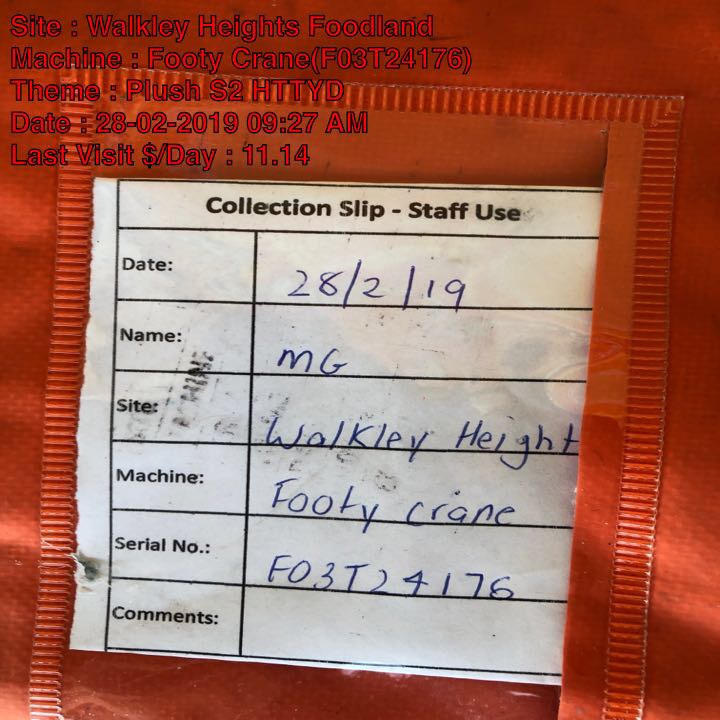 Site : Walkley Heights Foodland
Machine : Footy Crane(F03T24176)
Theme : Plush S2 HTTYD
Date : 28-02-2019 09:27 AM
Last Visit $/Day : 11.14
Collection Slip - Staff Use
Date: 28/2/19
Name: MG
Site: Walkley Height
Machine: Footy crane
Serial No.: F03T24176
Comments: